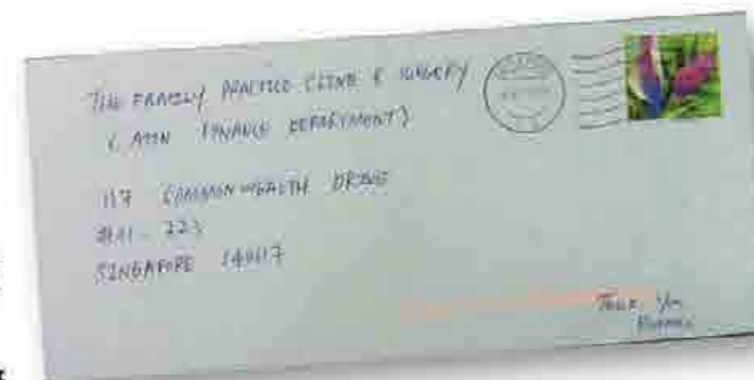 THE FAMILY PRACTICE CLINIC & SURGERY
( ATTN FINANCE DEPARTMENT)
117 COMMONWEALTH DRIVE
SINGAPORE 140117
THANK YOU